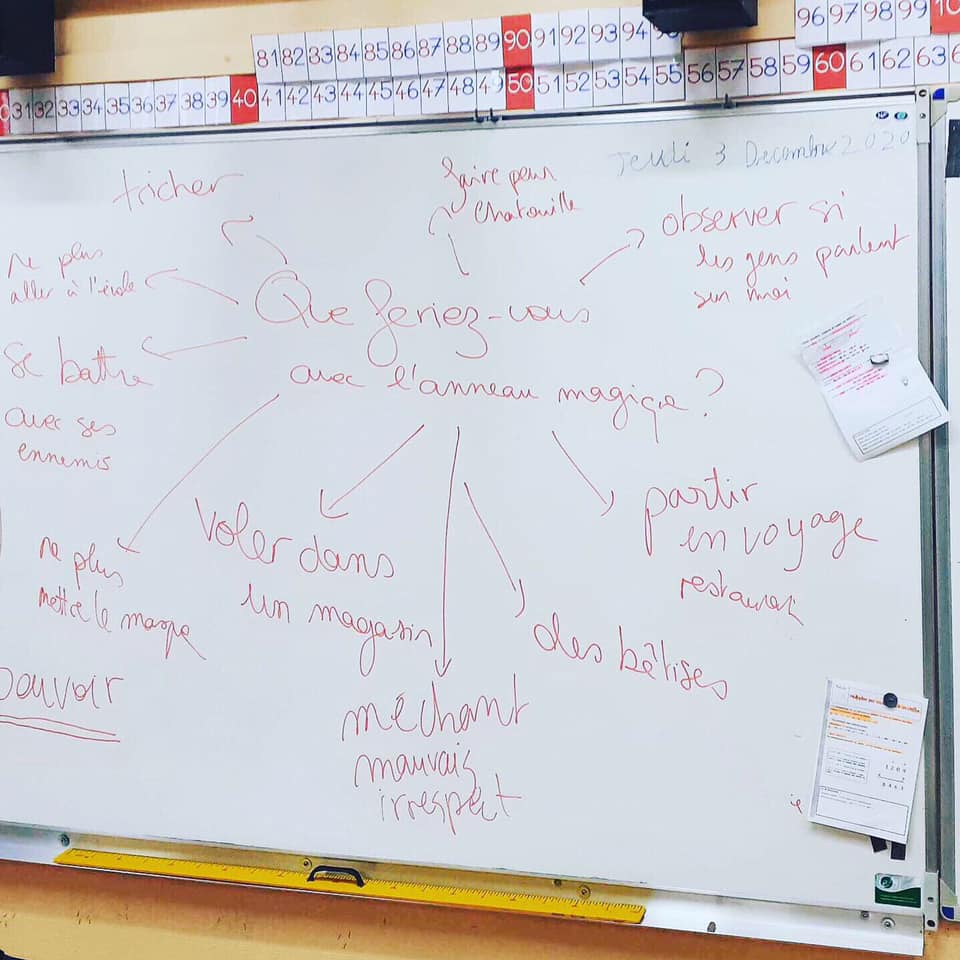 81 82 83 84 85 86 87 88 89 90 91 92 93 94
96 97 98 99
31 32 33 34 35 36 37 38 39 40 41 42 43 44 45 46 47 48 49 50 51 52 53 54 55 56 57 58 59 60 61 62 63
Jeudi 3 Decembre 2020
tricher
faire peur
chatouille
observer si
les gens parlent
sur moi
ne plus
aller à l'école
Que feriez-vous
avec l'anneau magique?
se battre
avec ses
ennemis
ne plus
mettre le masque
voler dans
un magasin
partir
en voyage
restaurant
des bêtises
pouvoir
méchant
mauvais
irrespect